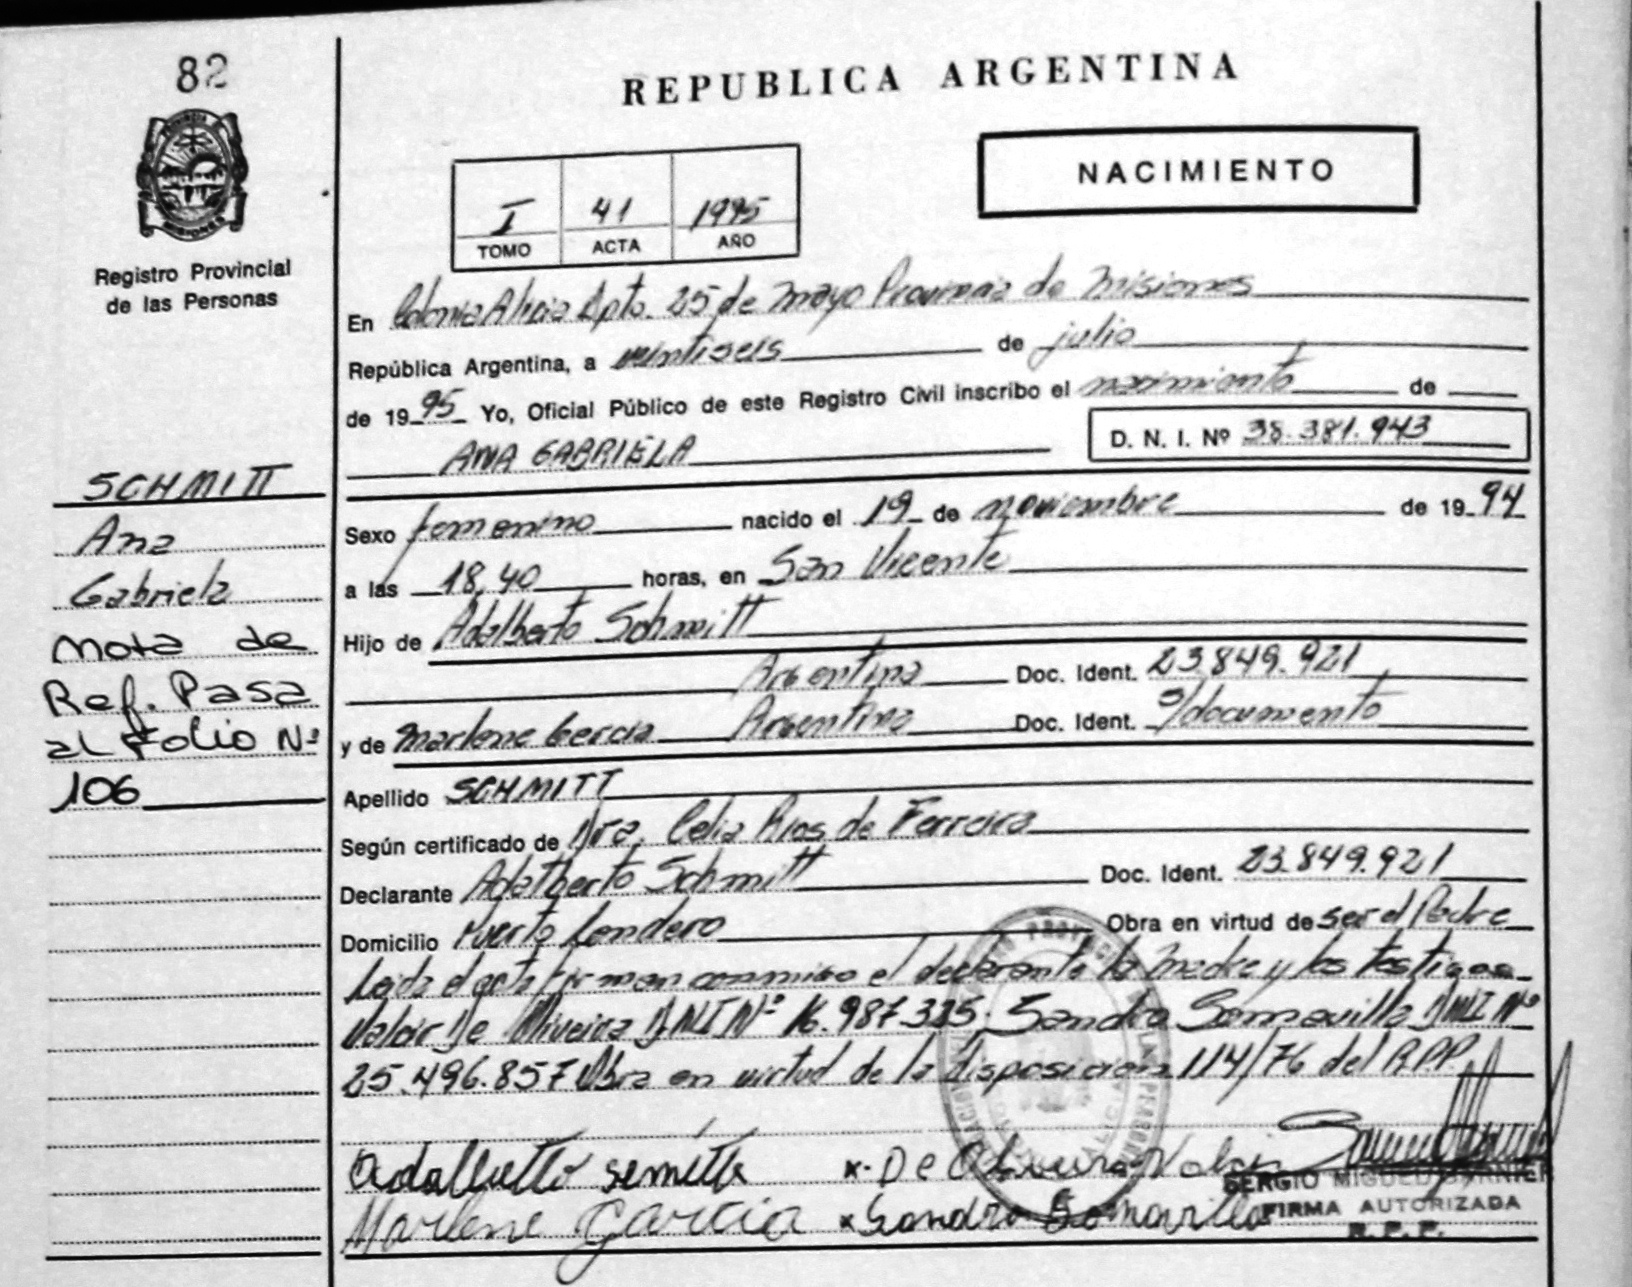 82
REPUBLICA ARGENTINA
NACIMIENTO
I 41 1995
TOMO ACTA AÑO
PROVINCIA
MISIONES
Registro Provincial
de las Personas
En Colonia Alicia Dpto. 25 de Mayo Provincia de Misiones
República Argentina, a veintiseis de julio
de 1995 Yo, Oficial Público de este Registro Civil inscribo el nacimiento de
ANA GABRIELA D. N. I. Nº 38.381.943
SCHMITT
Ana
Gabriela
Nota de
Ref. Pasa
al Folio Nº
106
Sexo femenino nacido el 19 de noviembre de 1994
a las 18,40 horas, en San Vicente
Hijo de Adalberto Schmitt
Argentina Doc. Ident. 23.849.921
y de Marlene García Argentina Doc. Ident. s/documento
Apellido SCHMITT
Según certificado de Dra. Celia Rios de Ferreira
Declarante Adalberto Schmitt Doc. Ident. 23.849.921
Domicilio Puerto Londero Obra en virtud de ser el Padre
Leida el acta firman conmigo el declarante la madre y los testigos
Valdir De Oliveira DNI Nº 16.987.335 Sandra Somavilla DNI Nº
25.496.857 Obra en virtud de la Disposición 114/76 del R.P.P.
Adalberto x. De Oliveira Valdir
SERGIO MIGUEL
Marlene Garcia x Sandra Somavilla
FIRMA AUTORIZADA
R. P. P.